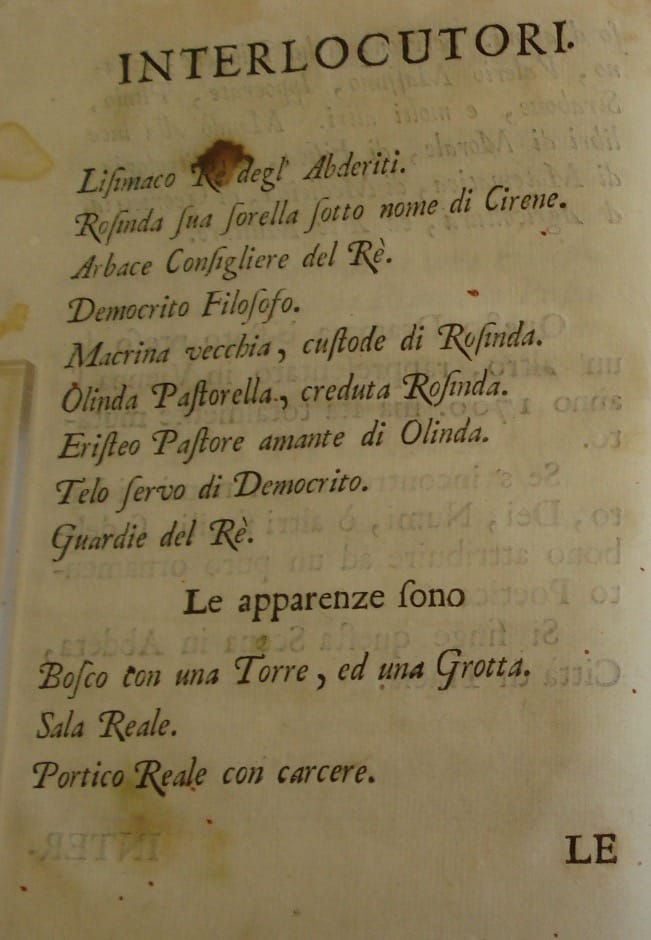 INTERLOCUTORI.
Liſimaco Rè degl' Abderiti.
Roſinda ſua ſorella ſotto nome di Cirene.
Arbace Conſigliere del Rè.
Democrito Filoſofo.
Macrina vecchia, cuſtode di Roſinda.
Olinda Paſtorella, creduta Roſinda.
Eriſteo Paſtore amante di Olinda.
Telo ſervo di Democrito.
Guardie del Rè.
Le apparenze ſono
Boſco con una Torre, ed una Grotta.
Sala Reale.
Portico Reale con carcere.
LE